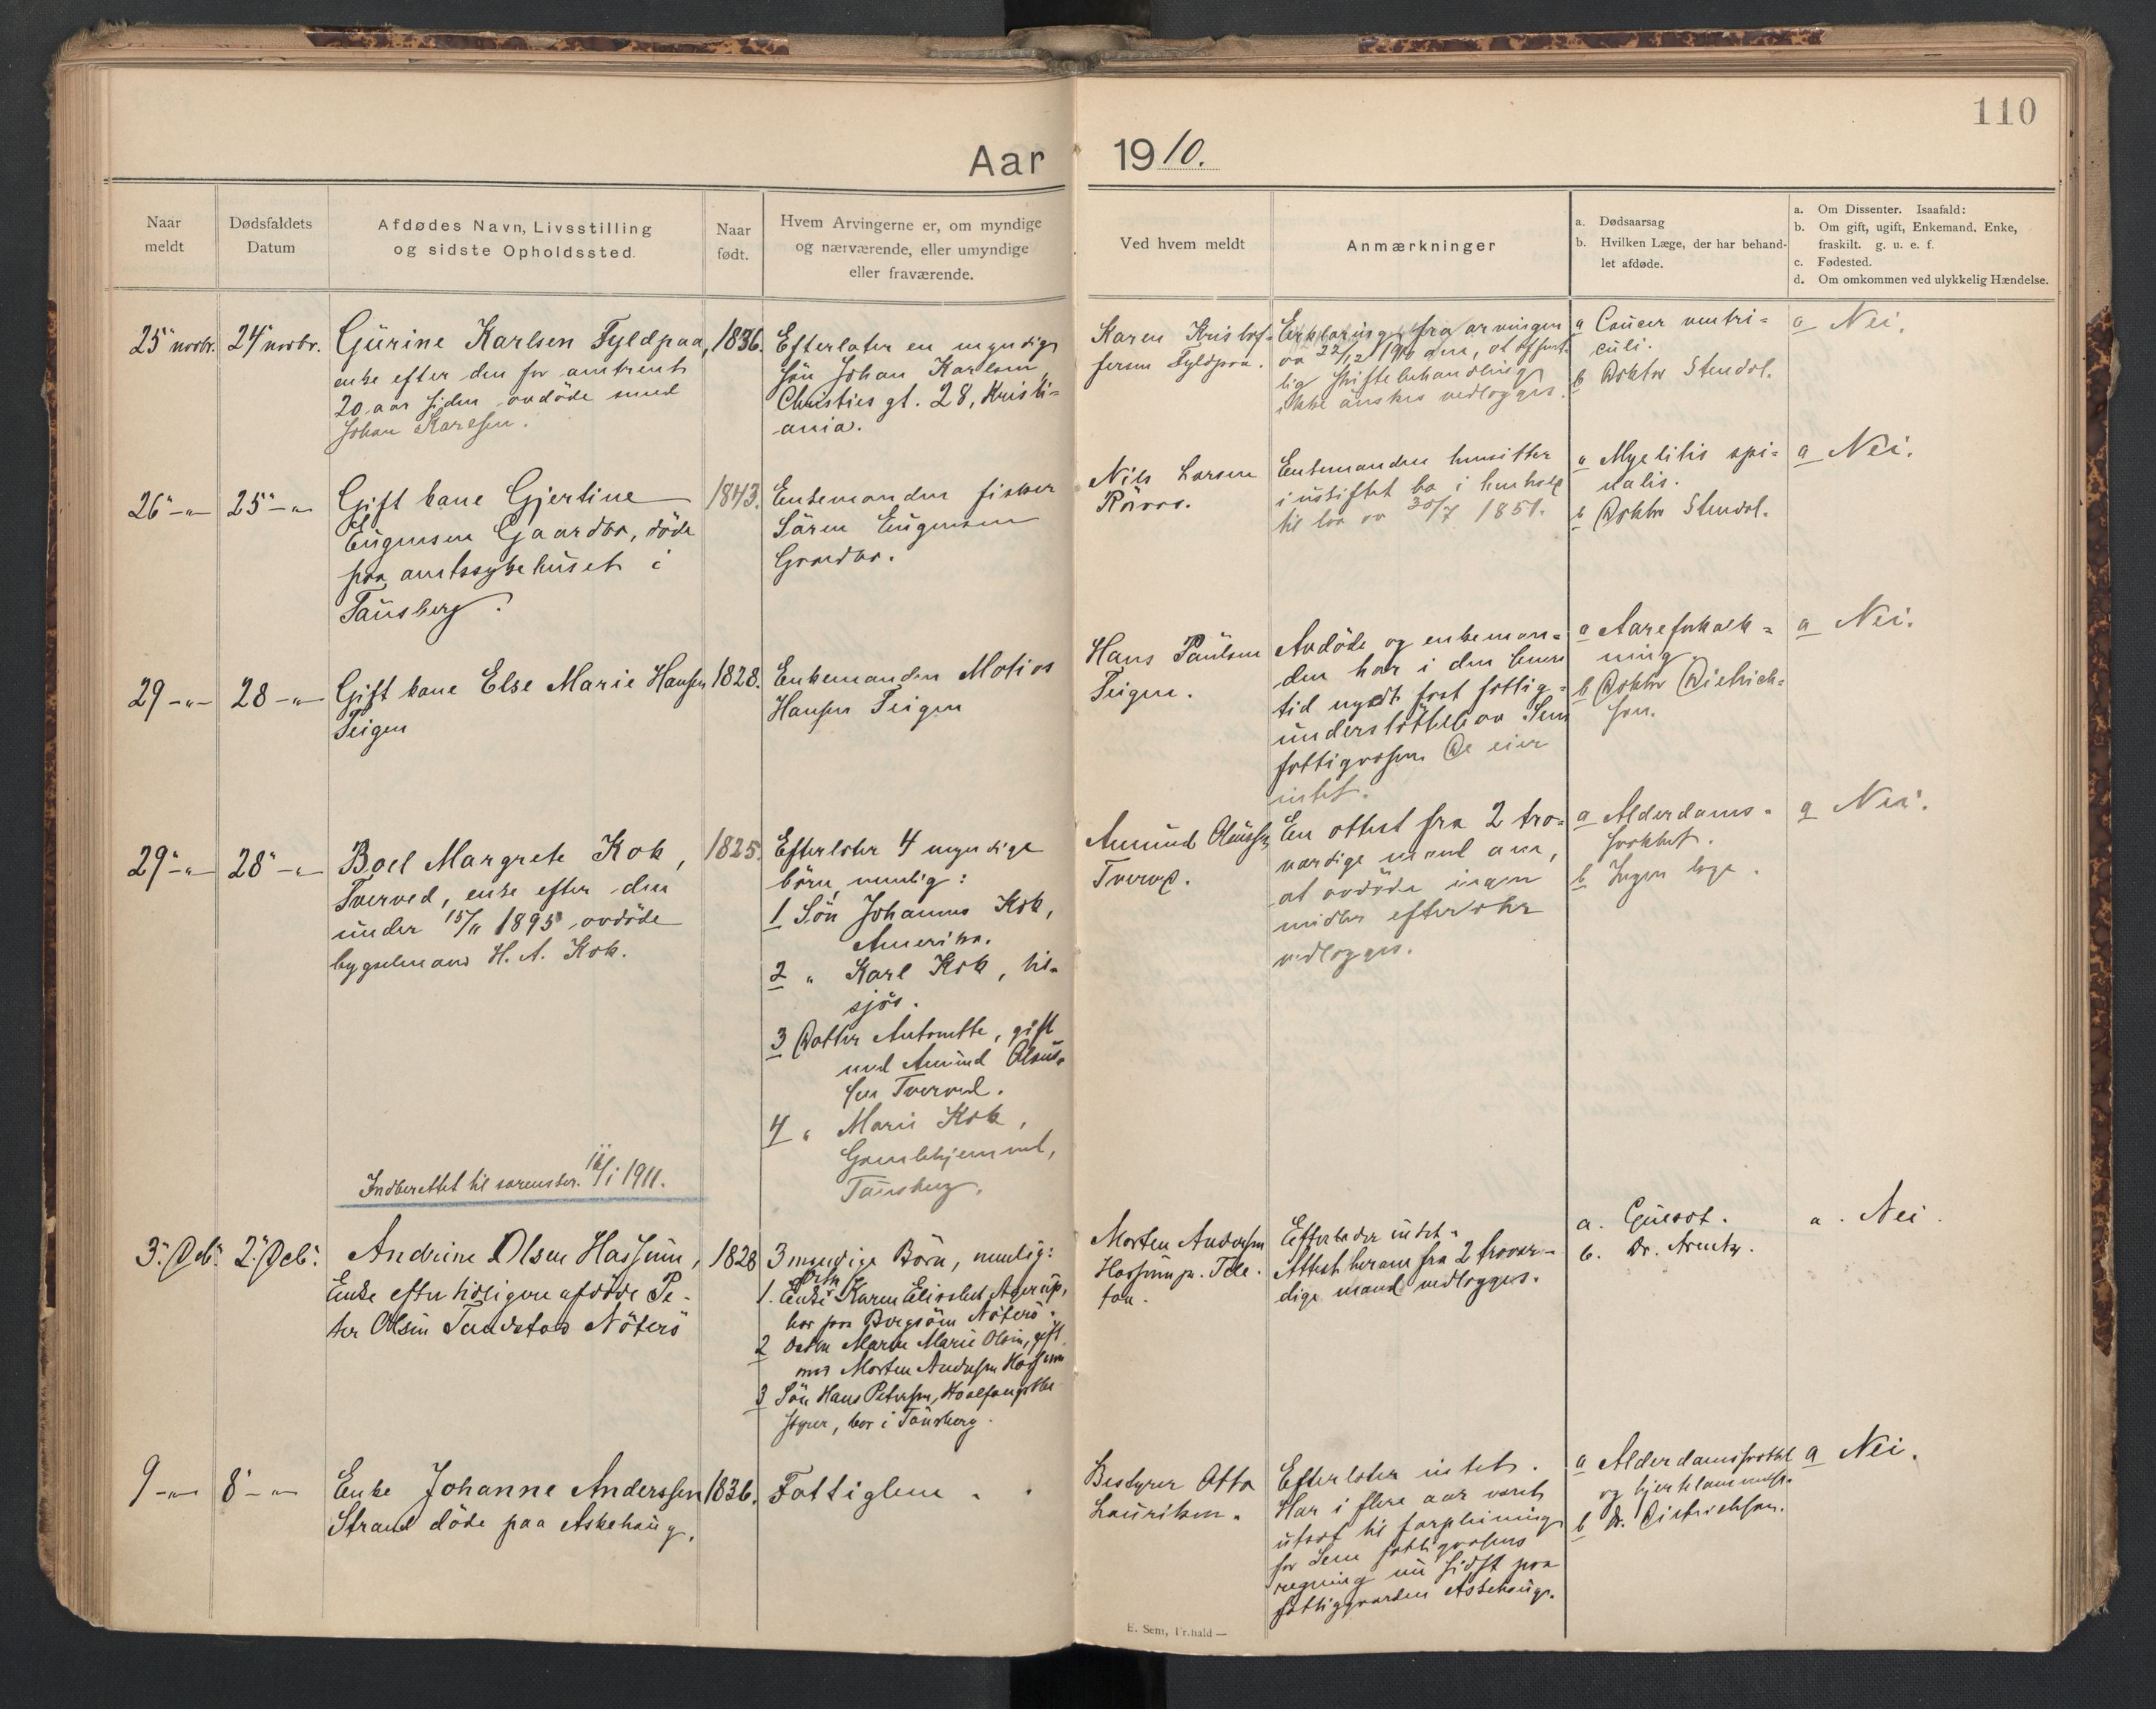 110
Aar 1910.
Naar meldt
Dødsfaldets Datum
Afdødes Navn, Livsstilling
og sidste Opholdssted.
Naar født.
Hvem Arvingerne er, om myndige
og nærværende, eller umyndige
eller fraværende.
Ved hvem meldt
Anmærkninger
a. Dødsaarsag
b. Hvilken Læge, der har behand-
let afdøde.
a. Om Dissenter. Isaafald:
b. Om gift, ugift, Enkemand, Enke,
fraskilt. g. u. e. f.
c. Fødested.
d. Om omkommen ved ulykkelig Hændelse.
25" novbr.
24" novbr.
Gurine Karlsen Fyldpaa,
enke efter den for omtrent
20 aar siden avdöde smed
Johan Karlsen.
1836.
Efterlater en myndig
sön Johan Karlsen,
Christies gt. 28, Kristi-
ania.
Karen Kristof-
fersen Fyldpaa.
Erklæring fra arvingen
av 22/12 1910 om, at offent-
lig skiftebehandling
ikke önskes vedlægges.
a Cancer ventri-
culi.
b Doktor Stendal.
a Nei.
26"-"-
25"-"-
Gift kone Gjertine
Eugensen Gaardbo, döde
paa amtssykehuset i
Tönsberg.
1843.
Enkemanden fisker
Sören Eugensen
Gaardbo.
Nils Larsen
Röraas.
Enkemanden hensitter
i uskiftet bo i henhold
til lov av 30/7 1851.
a Myelitis spi-
nalis.
b Doktor Stendal.
a Nei.
29-"-
28-"-
Gift kone Else Marie Hansen
Teigen
1828.
Enkemanden Matias
Hansen Teigen
Hans Paulsen
Teigen.
Avdöde og enkeman-
den har i den senere
tid nydt fast fattig-
understöttelse av Sem
fattigvæsen. De eier
intet.
a Aareforkalk-
ning.
b Doktor Dietrich-
son.
a Nei.
29"-"-
28"-"-
Boel Margrete Kok,
Tverved, enke efter den
under 15/11 1895 avdöde
bygselmand H. A. Kok.
1825.
Efterlater 4 myndige
börn, nemlig:
1 Sön Johannes Kok,
Amerika.
2 " Karl Kok, til-
sjös.
3 Datter Antonette, gift
med Amund Olaus-
sen Tverved.
4 " Marie Kok,
Gamlehjemmet,
Tönsberg.
Amund Olaussen
Tverved.
En attest fra 2 tro-
værdige mænd om,
at avdöde ingen
midler efterlater
vedlægges.
a Alderdoms-
svakhet.
b Ingen læge.
a Nei.
Indberettet til sorenskr. 11/1 1911.
3" Deb.
2" Deb.
Andrine Olsen Hassum,
Enke efter tidligere afdøde Pe-
ter Olsen Nöterö
1828
3 myndige Börn, nemlig:
1. Enke Karen Elisabet Agerup,
bor paa Nöterö.
2 Datter Maren Marie Olsen, gift
med Morten Andersen Hassum
3 Sön Hans Petersen, Hvalfangstbe
styrer, bor i Tönsberg.
Morten Andersen
Hassum
Efterlader intet.
Attest herom fra 2 troværdige
mænd vedlægges.
a.
b. Dr. Arentz.
a. Nei.
9-"-
8"-"-
Enke Johanne Anderssen
Strand döde paa Askehaug.
1836.
Fattiglem.
Bestyrer Otto
Lauritsen.
Efterlater intet.
Har i flere aar været
utsat til forpleining
for Sem fattigvæsens
regning nu sidst paa
fattiggaarden Askehaug.
a Alderdomssvakhet
og hjertelammelse.
b Dr. Dietrichson.
a Nei.
E. Sem, Fr.hald —